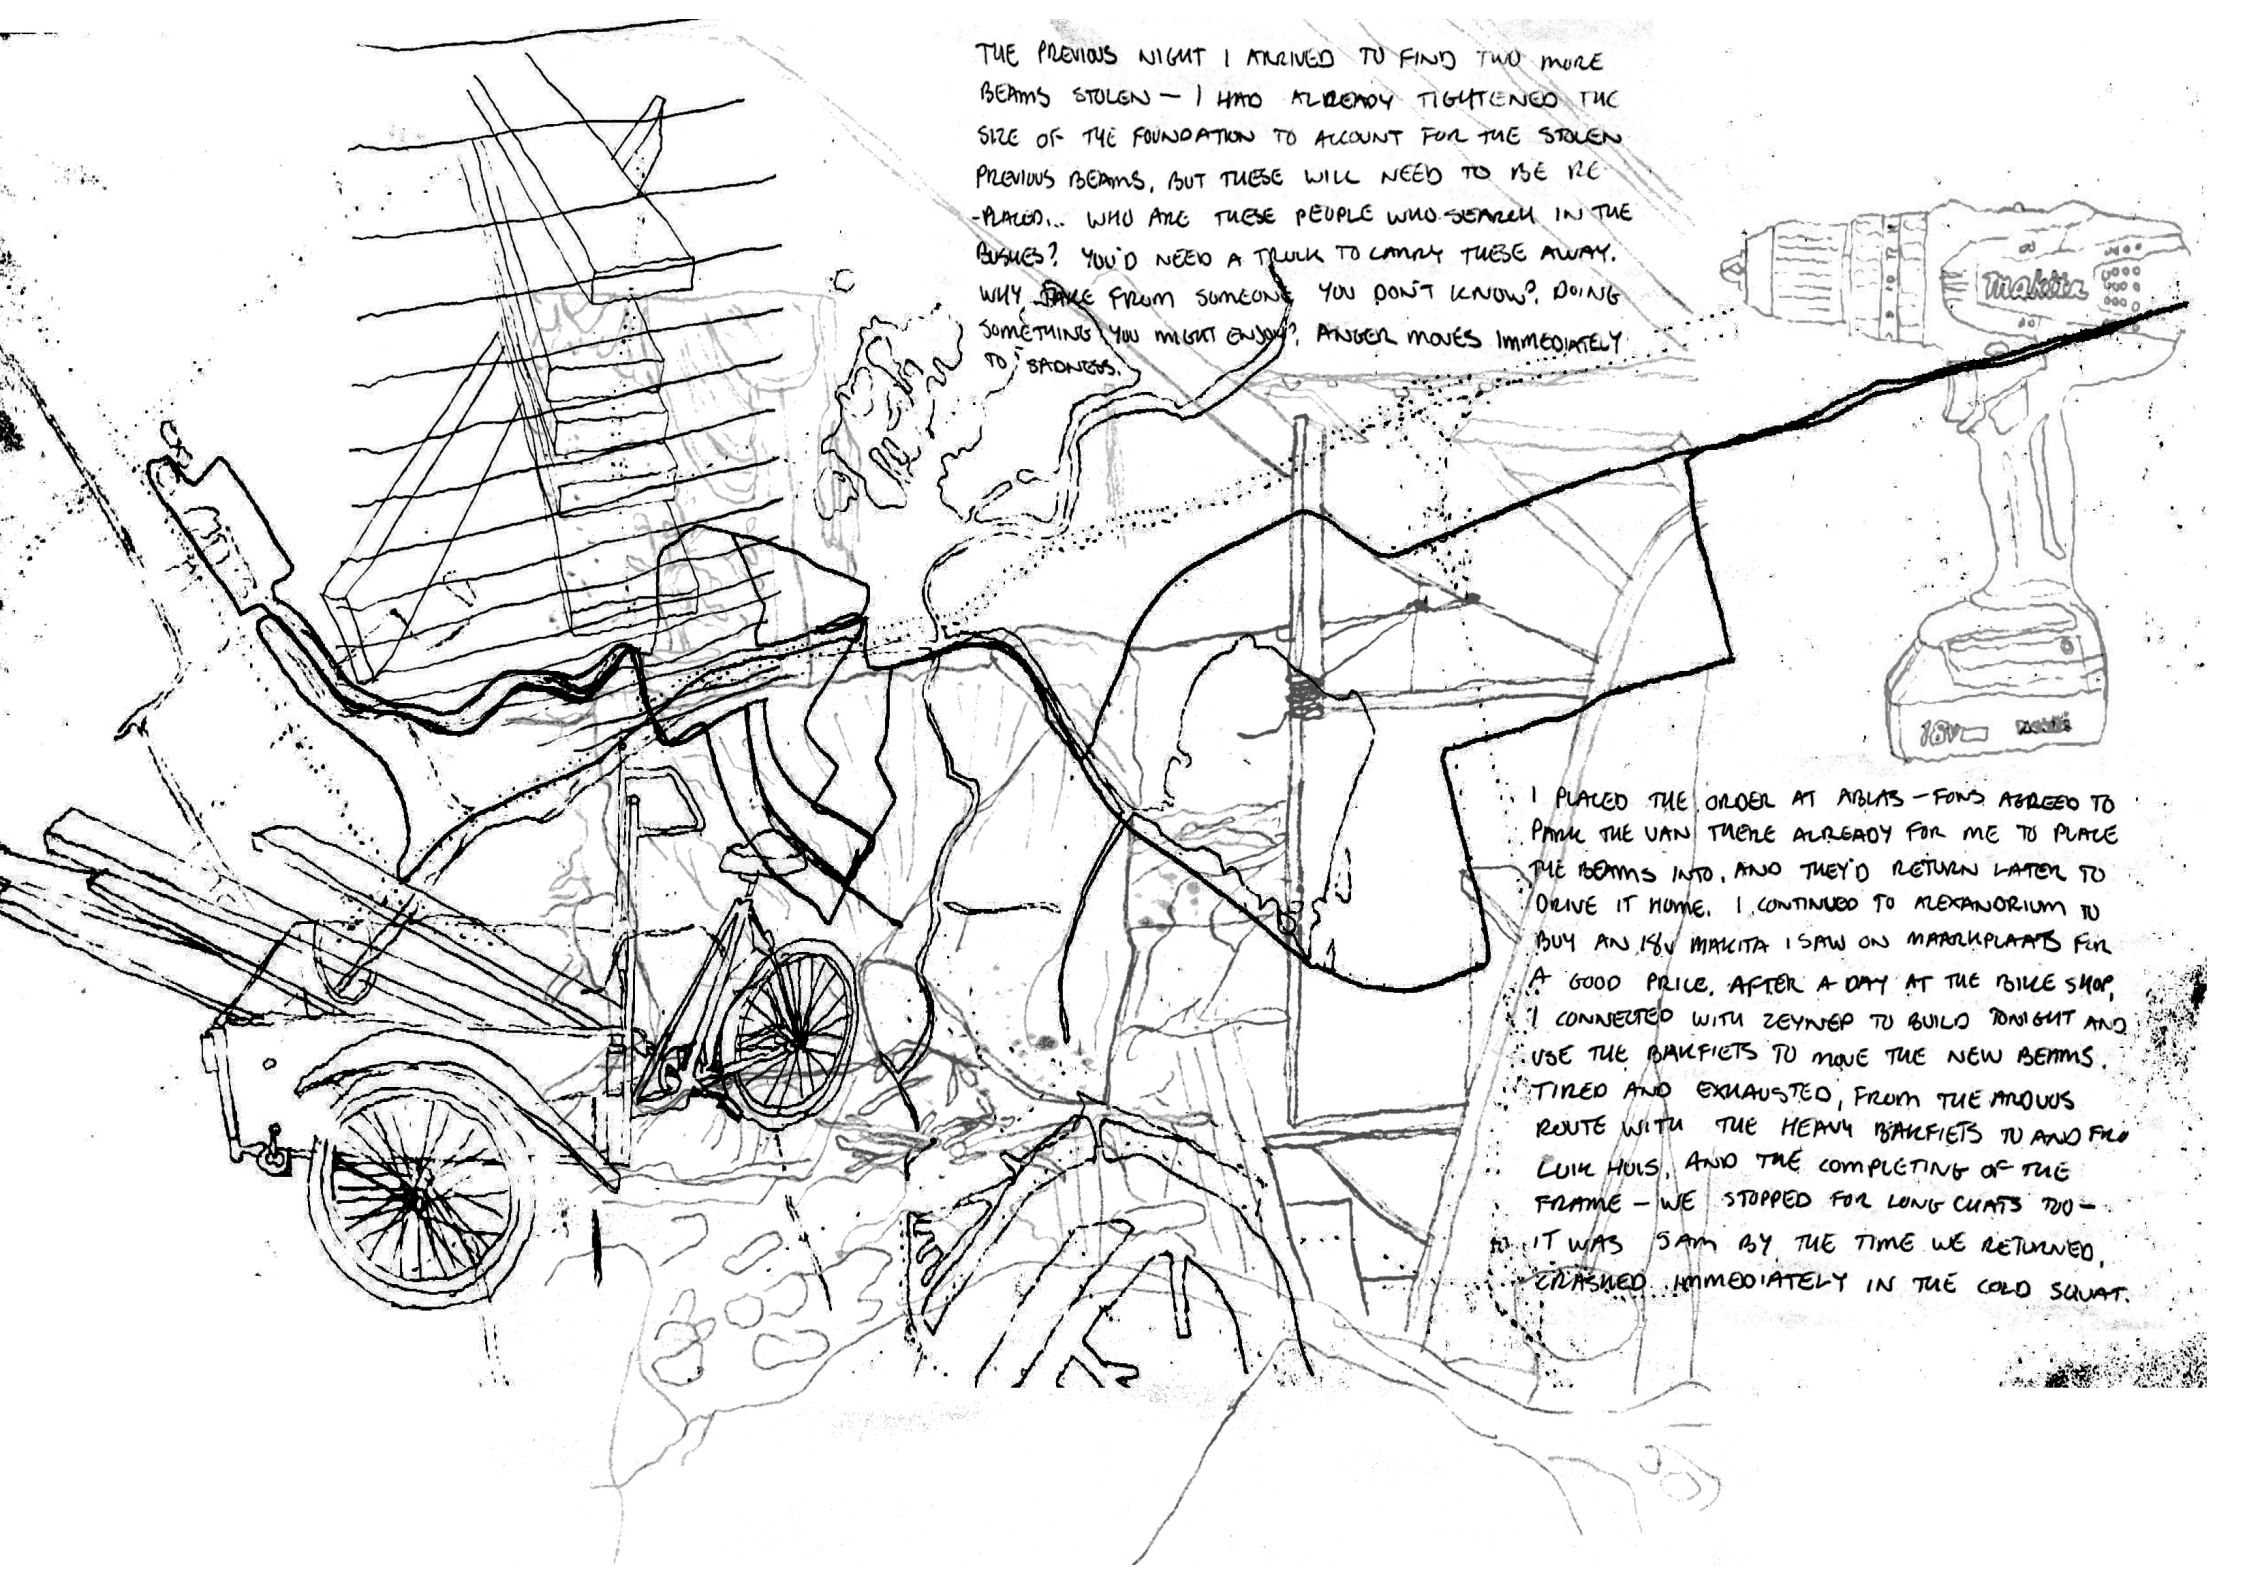 THE PREVIOUS NIGHT I ARRIVED TO FIND TWO MORE
BEAMS STOLEN — I HAD ALREADY TIGHTENED THE
SIZE OF THE FOUNDATION TO ACCOUNT FOR THE STOLEN
PREVIOUS BEAMS, BUT THESE WILL NEED TO BE RE-
-PLACED... WHO ARE THESE PEOPLE WHO SEARCH IN THE
BUSHES? YOU'D NEED A TRUCK TO CARRY THESE AWAY.
WHY TAKE FROM SOMEONE YOU DON'T KNOW? DOING
SOMETHING YOU MIGHT ENJOY? ANGER MOVES IMMEDIATELY
TO SADNESS.
makita
18V
I PLACED THE ORDER AT ABLAS — FONS AGREED TO
PARK THE VAN THERE ALREADY FOR ME TO PLACE
THE BEAMS INTO, AND THEY'D RETURN LATER TO
DRIVE IT HOME. I CONTINUED TO ALEXANDRIUM TO
BUY AN 18V MAKITA I SAW ON MAARKPLAATS FOR
A GOOD PRICE. AFTER A DAY AT THE BIKE SHOP,
I CONNECTED WITH ZEYNEP TO BUILD TONIGHT AND
USE THE BAKFIETS TO MOVE THE NEW BEAMS.
TIRED AND EXHAUSTED, FROM THE ARDUOUS
ROUTE WITH THE HEAVY BAKFIETS TO AND FRO
LUIK HUIS, AND THE COMPLETING OF THE
FRAME — WE STOPPED FOR LONG CHATS TOO —
IT WAS 5AM BY THE TIME WE RETURNED,
CRASHED IMMEDIATELY IN THE COLD SQUAT.